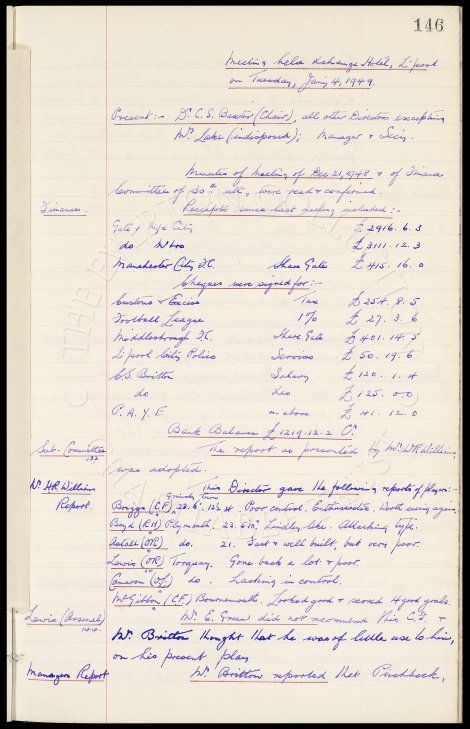 146
Meeting held Exchange Hotel, L'pool
on Tuesday, Jany 4, 1949.
Present:- Dr. C.S. Baxter (Chair), all other Directors excepting
Mr. Lake (indisposed); Manager & Secy.
Minutes of Meeting of Dec 21, 1948 & of Finance
Committee of 30th ult, were read & confirmed.
Finance. Receipts since last meeting included:-
Gate v M/c City £ 2916. 6. 3
do W'ton £ 3111. 12. 3
Manchester City F.C. Share Gate £ 415. 16. 0
Cheques were signed for:-
Customs & Excise Tax £ 254. 8. 5
Football League 1% £ 27. 3. 6
Middlesbrough F.C. Share Gate £ 401. 14. 5
L'pool City Police Services £ 50. 19. 6
C.S. Britton Salary £ 120. 1. 4
do £ 125. 0. 0
P.A.Y.E as above £ 41. 12. 0
Bank Balance £ 1219. 12. 2 Cr.
Sub. Committee The report as presented by Mr. W.R. Williams,
was adopted.
Mr. W.R. Williams This Director gave the following reports of players:-
Report. Briggs (CF) Grimsby Town 23. 6". Poor control. Enthusiastic. Worth seeing again.
Boyd (RH) Plymouth. 23. 5'10". Lindley-like. Attacking type.
Astall (OR) do. 21. Fast & well built, but very poor.
Lewis (OR) Torquay. Gone back a lot & poor.
Cameron do. Lacking in control.
McGibbon (CF) Bournemouth. Looked good & scored 4 good goals.
Lewis (Arsenal) Mr. E. Green did not recommend this C.F. &
144
Mr. Britton thought that he was of little use to him,
on his present play
Managers Report Mr. Britton reported that Pinchbeck,